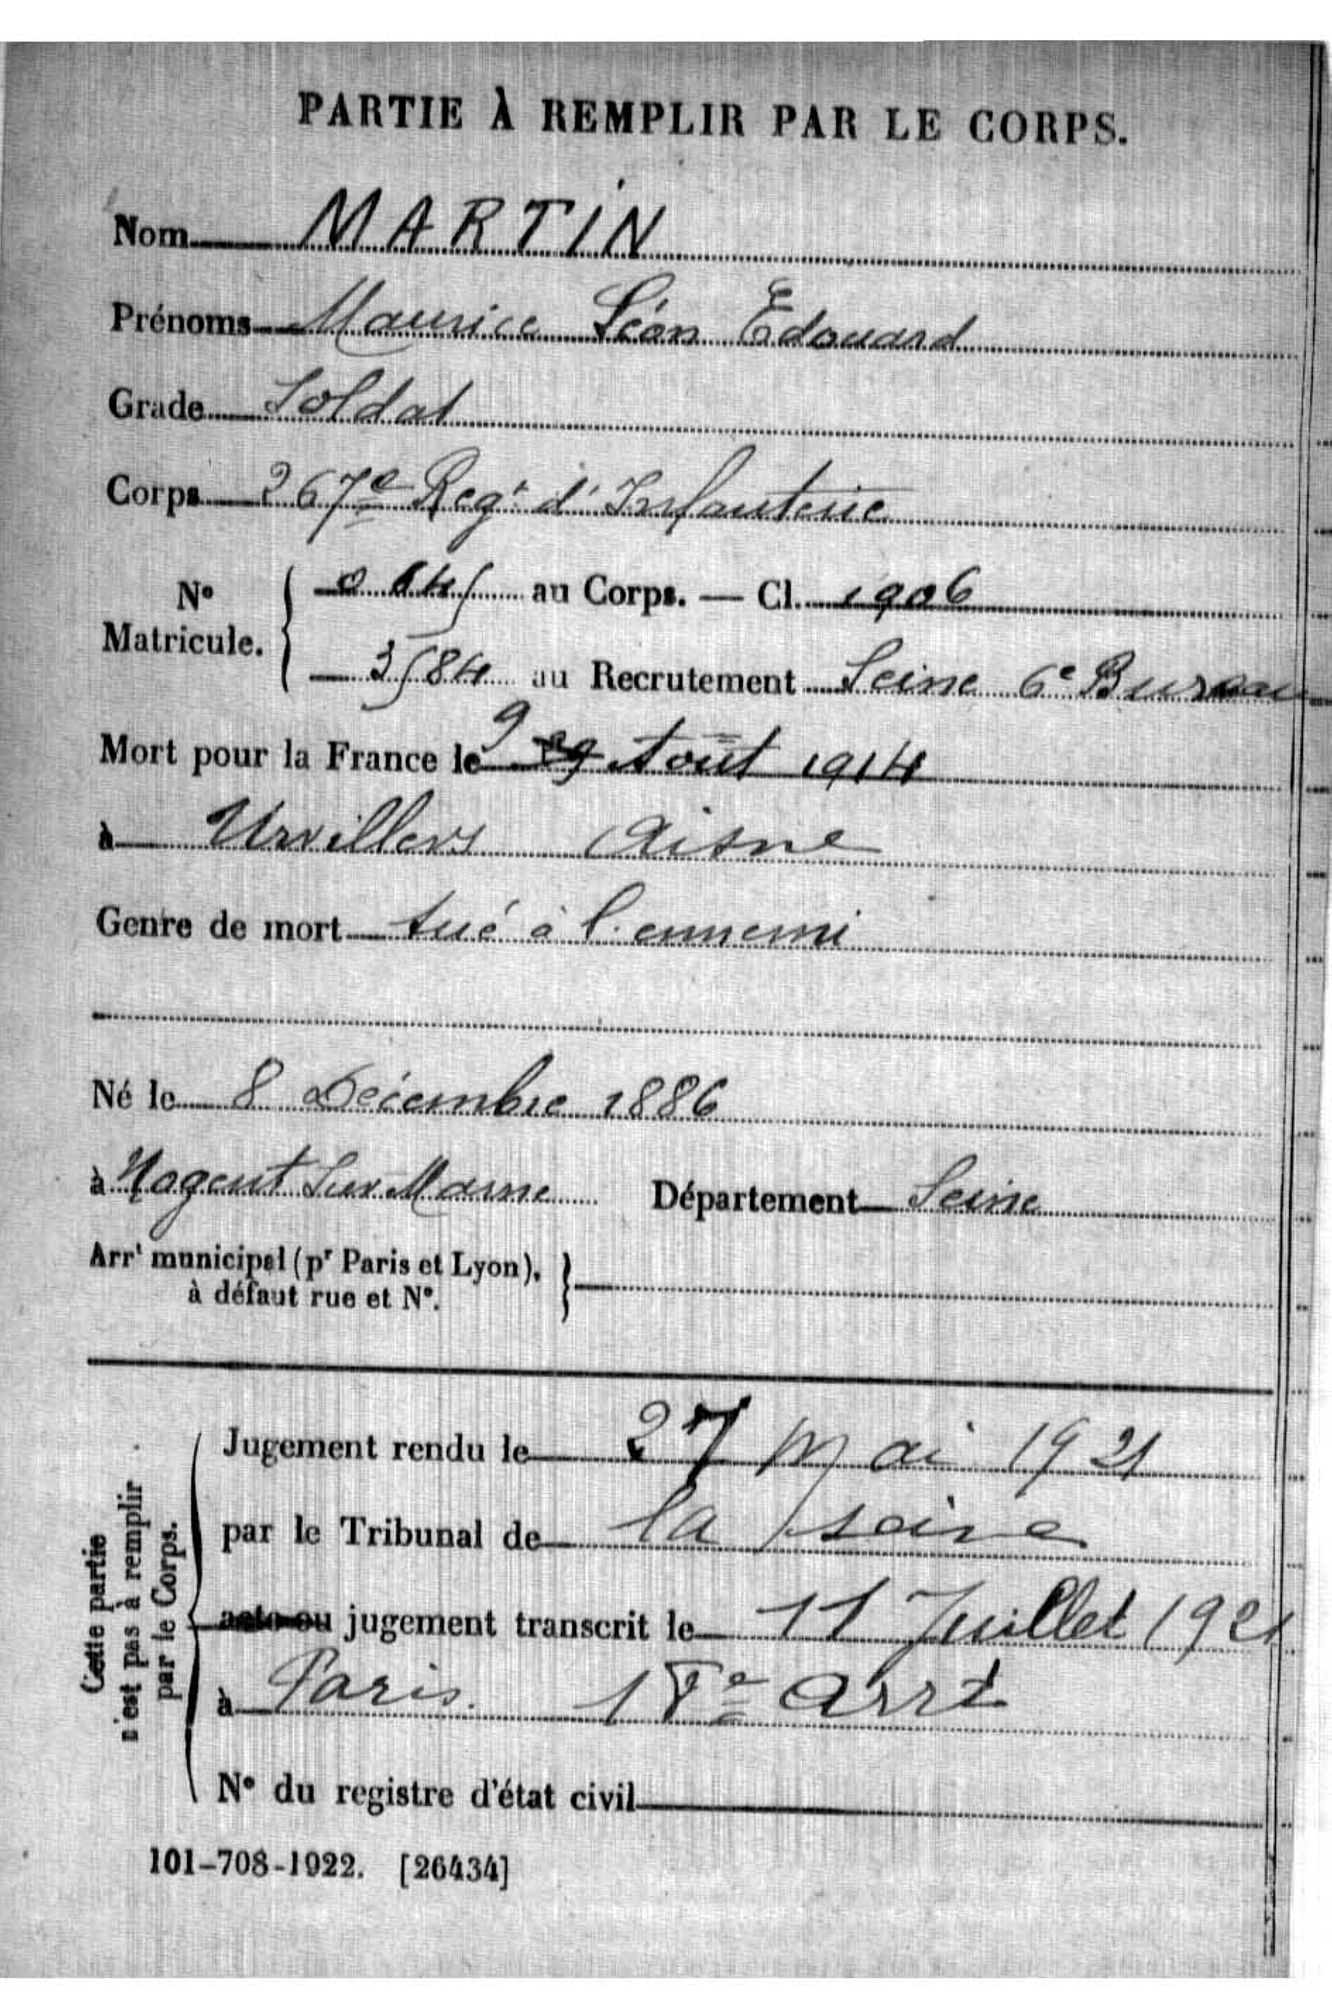 PARTIE À REMPLIR PAR LE CORPS.
Nom MARTIN
Prénoms Maurice Léon Edouard
Grade Soldat
Corps 267e Regt d'Infanterie
No Matricule. au Corps. — Cl. 1906
3584 au Recrutement Seine 6e Bureau
Mort pour la France le 9 29 Août 1914
à Urvillers Aisne
Genre de mort tué à l'ennemi
Né le 8 Décembre 1886
à Nogent Sur Marne Département Seine
Arrt municipal (pr Paris et Lyon),
à défaut rue et No.
Cette partie
n'est pas à remplir
par le Corps.
Jugement rendu le 27 Mai 1921
par le Tribunal de la Seine
acte ou jugement transcrit le 11 Juillet 1921
à Paris. Arrt
No du registre d'état civil
101-708-1922. [26434]